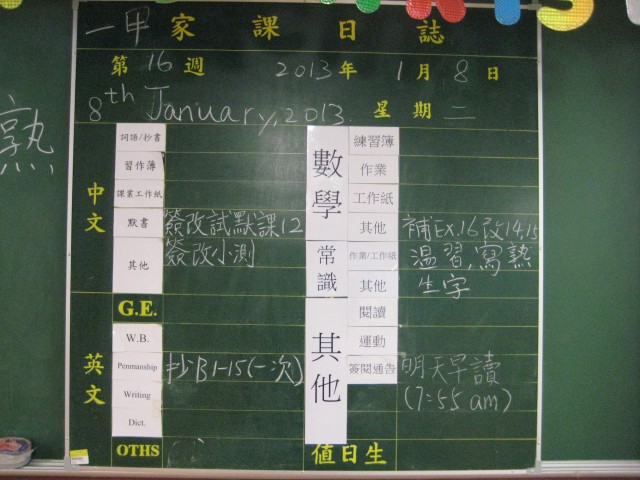 一甲家課日誌
第16週 2013年1月8日
8th January, 2013. 星期二
熟
中文
詞語/抄書
習作簿
課業工作紙
默書 簽改試默課12
其他 簽改小測
英文
G.E.
W.B.
Penmanship 抄B1-15(一次)
Writing
Dict.
OTHS
數學
練習簿
作業
工作紙
其他 補Ex.16改14,15
常識
作業/工作紙 溫習,寫熟
其他 生字
其他
閱讀
運動
簽閱通告 明天早讀
(7:55 am)
值日生